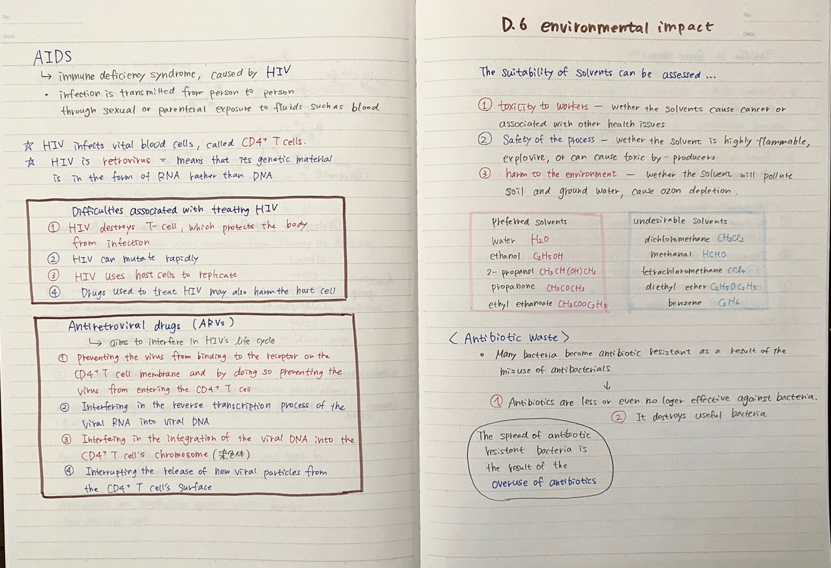 AIDS
↳ immune deficiency syndrome, caused by HIV
• infection is transmitted from person to person
through sexual or parenteral exposure to fluids such as blood
☆ HIV infects vital blood cells, called CD4⁺ T cells.
☆ HIV is retrovirus = means that its genetic material
is in the form of RNA rather than DNA
Difficulties associated with treating HIV
① HIV destroys T-cell, which protects the body
from infection
② HIV can mutate rapidly
③ HIV uses host cells to replicate
④ Drugs used to treat HIV may also harm the host cell
Antiretroviral drugs (ARVs)
↳ aims to interfere in HIV's life cycle
① Preventing the virus from binding to the receptor on the
CD4⁺ T cell membrane and by doing so preventing the
virus from entering the CD4⁺ T cell
② Interfering in the reverse transcription process of the
viral RNA into viral DNA
③ Interfeing in the integration of the viral DNA into the
CD4⁺ T cell's chromosome (染色体)
④ Interrupting the release of new viral particles from
the CD4⁺ T cell's surface
D.6 environmental impact
The suitability of solvents can be assessed ...
① toxicity to workers – wether the solvents cause cancer or
associated with other health issues
② Safety of the process – wether the solvent is highly flammable,
explovire, or can cause toxic by-producers
③ harm to the environment – wether the solvent will pollute
soil and ground water, cause ozon depletion.
preferred solvents
water H₂O
ethanol C₂H₅OH
2-propanol CH₃CH(OH)CH₃
propanone CH₃COCH₃
ethyl ethanoate CH₃COOC₂H₅
undesirable solvents
dichloromethane CH₂Cl₂
methanal HCHO
tetrachloromethane CCl₄
diethyl ether C₂H₅OC₂H₅
benzene C₆H₆
< Antibiotic Waste >
• Many bacteria become antibiotic resistant as a result of the
misuse of antibacterials
↓
① Antibiotics are less or even no loger effective against bacteria.
② It destroys useful bacteria
The spread of antibiotic
resistant bacteria is
the result of the
overuse of antibiotics